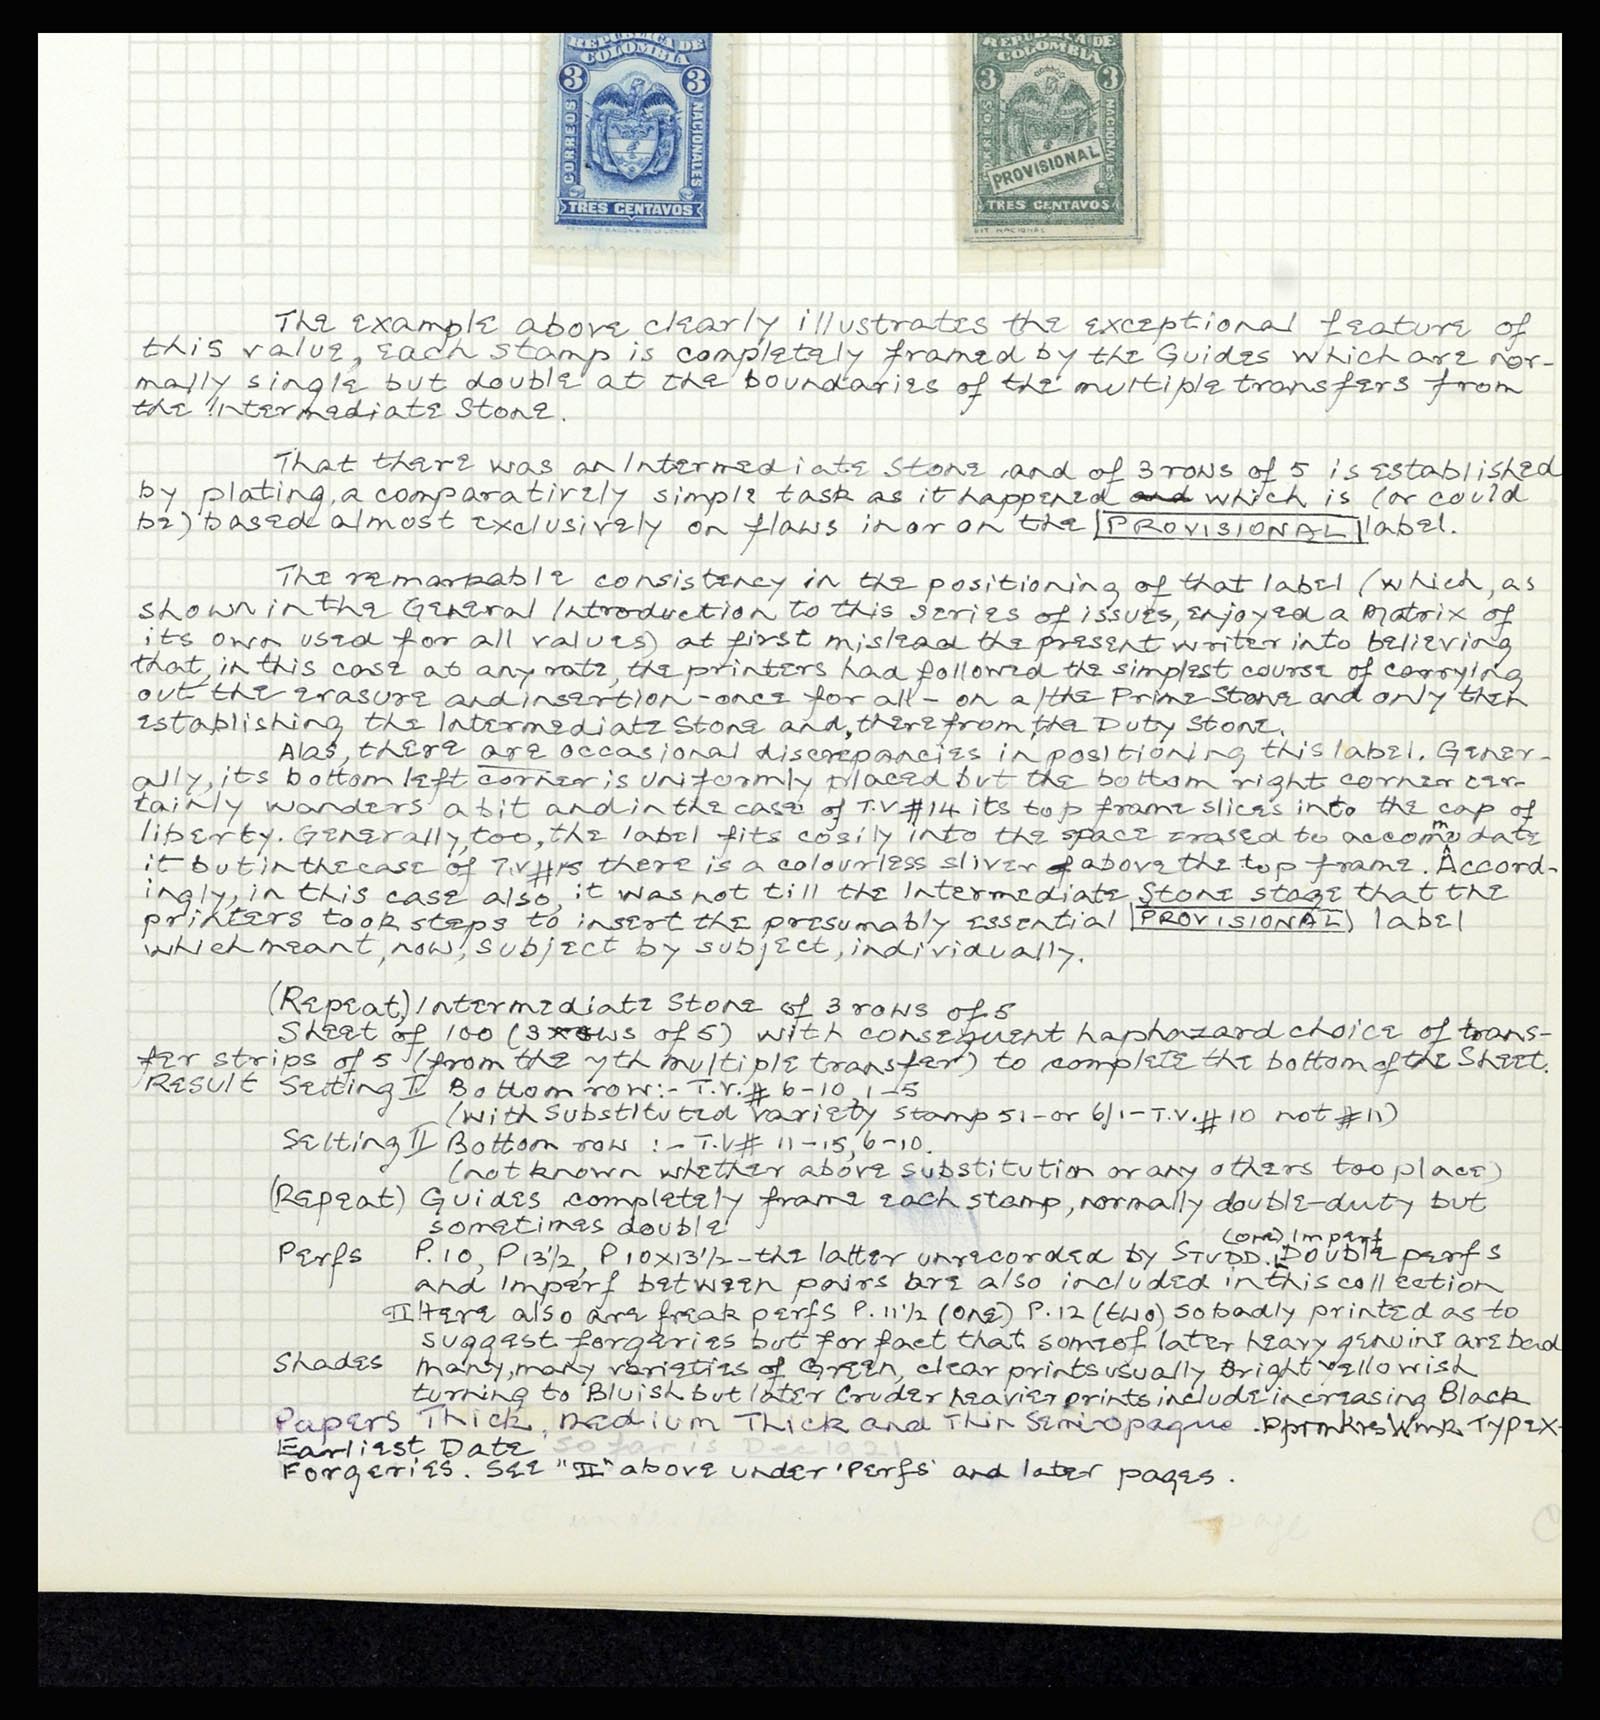 REPUBLICA DE
COLOMBIA
3 3
CORREOS NACIONALES
TRES CENTAVOS
REPUBLICA DE
COLOMBIA
3 3
CORREOS NACIONALES
PROVISIONAL
TRES CENTAVOS
LIT. NACIONAL
The example above clearly illustrates the exceptional feature of
this value, each stamp is completely framed by the Guides which are nor-
mally single but double at the boundaries of the multiple transfers from
the Intermediate Stone.
That there was an Intermediate Stone and of 3 rows of 5 is established
by plating, a comparatively simple task as it happened and which is (or could
be) based almost exclusively on flaws in or on the PROVISIONAL label.
The remarkable consistency in the positioning of that label (which, as
shown in the General Introduction to this series of issues, enjoyed a Matrix of
its own used for all values) at first mislead the present writer into believing
that, in this case at any rate, the printers had followed the simplest course of carrying
out the erasure and insertion - once for all - on a/the Prime Stone and only then
establishing the Intermediate Stone and, therefrom, the Duty Stone.
Alas, there are occasional discrepancies in positioning this label. Gener-
ally, its bottom left corner is uniformly placed but the bottom right corner cer-
tainly wanders a bit and in the case of T.V #14 its top frame slices into the cap of
liberty. Generally, too, the label fits cosily into the space erased to accommodate
it but in the case of T.V #15 there is a colourless sliver of above the top frame. Accord-
ingly, in this case also, it was not till the Intermediate Stone stage that the
printers took steps to insert the presumably essential PROVISIONAL label
which meant, now, subject by subject, individually.
(Repeat) Intermediate Stone of 3 rows of 5
Sheet of 100 (3 rows of 5) with consequent haphazard choice of trans-
fer strips of 5 (from the 7th multiple transfer) to complete the bottom of the Sheet.
Result Setting I Bottom row:- T.V.# 6-10, 1-5
(with substituted variety stamp 51 - or 6/1 - T.V.# 10 not # 11)
Setting II Bottom row :- T.V# 11-15, 6-10.
(not known whether above substitution or any others too place)
(Repeat) Guides completely frame each stamp, normally double-duty but
sometimes double
(one) Imperf
Perfs P.10, P 13½, P 10x13½ - the latter unrecorded by STUDD. Double perfs
and Imperf between pairs are also included in this collection
II Here also are freak perfs P.11½ (one) P.12 (two) so badly printed as to
suggest forgeries but for fact that some of later heavy genuine are bad
Shades many, many varieties of Green, clear prints usually Bright Yellowish
turning to Bluish but later Cruder heavier prints include increasing Black
Papers Thick, Medium Thick and Thin Semi-opaque. Wmk Type X
Earliest Date So far is Dec 1921
Forgeries. See "II" above under 'Perfs' and later pages.